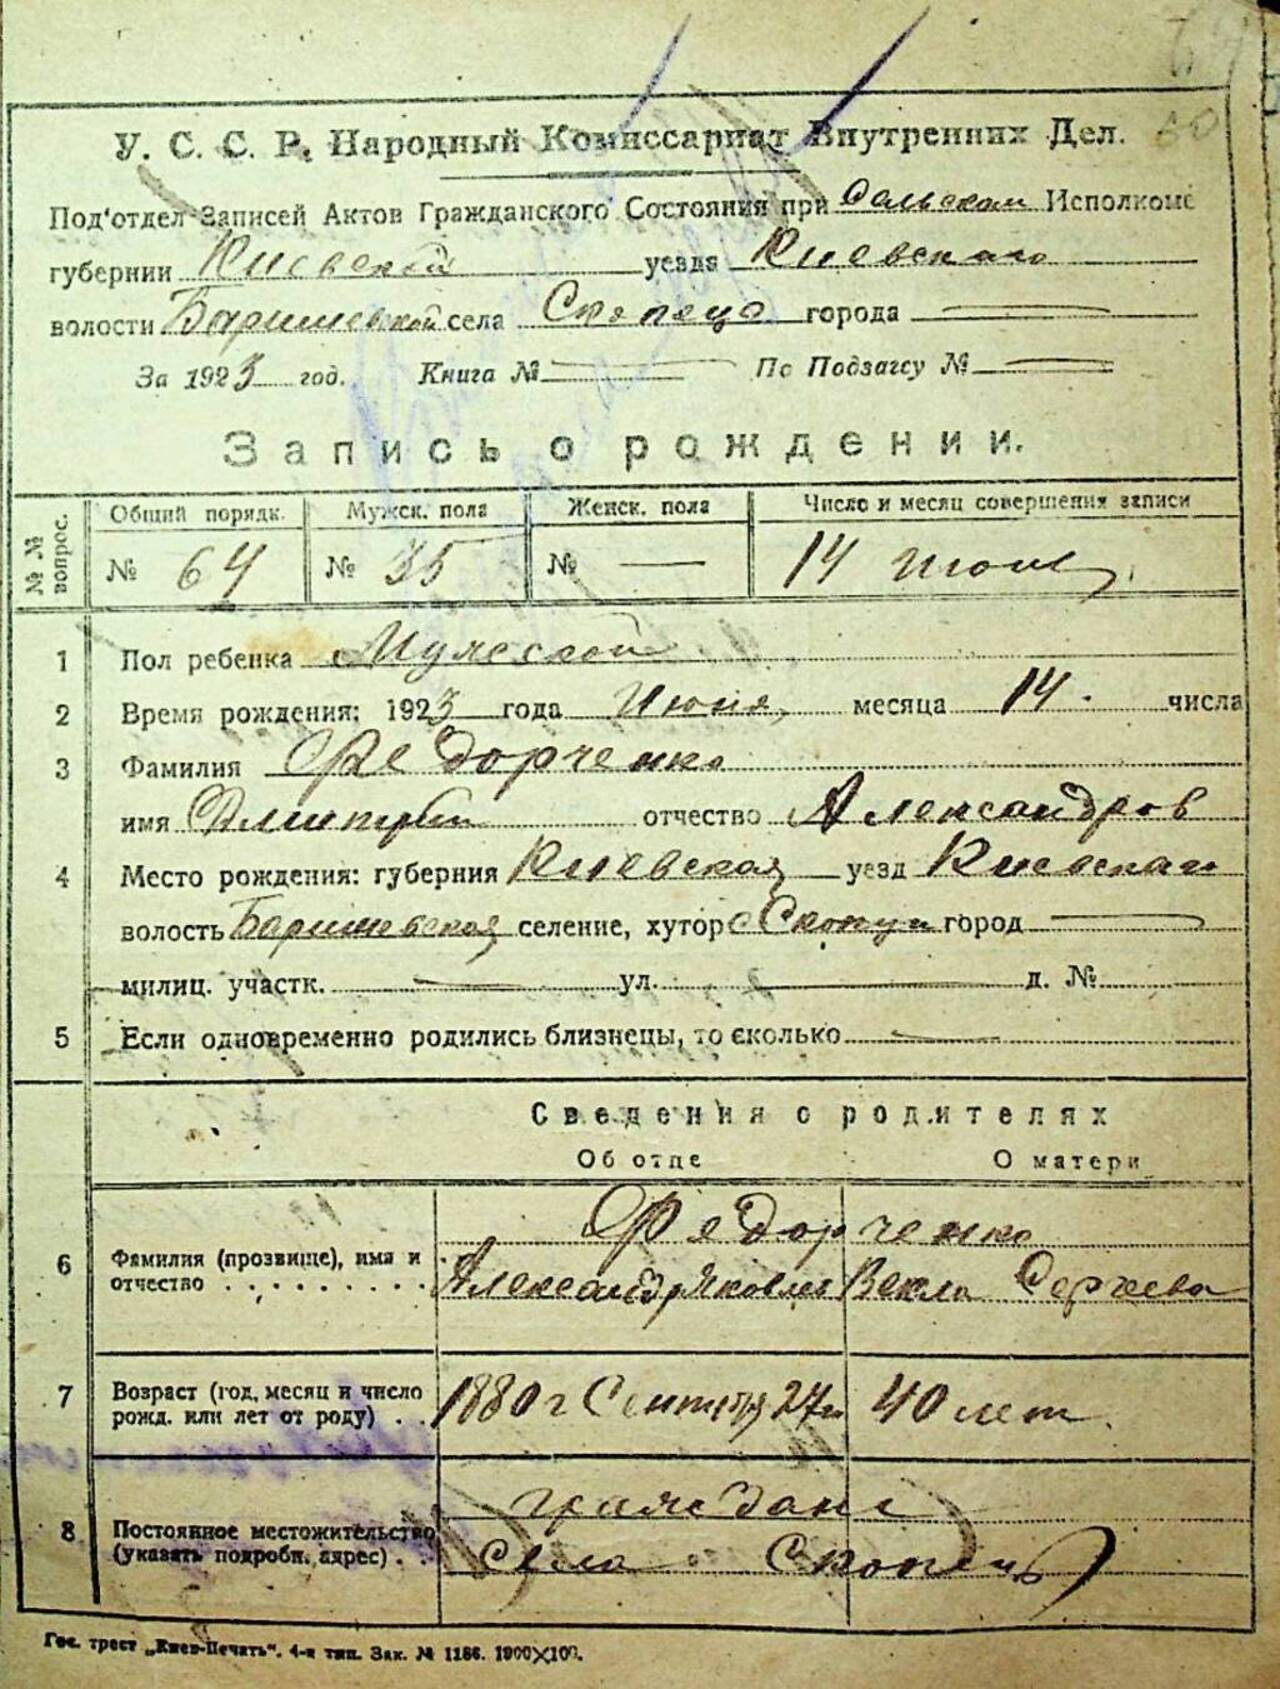 60
У. С. С. Р. Народный Комиссариат Внутренних Дел.
Под‘отдел Записей Актов Гражданского Состояния при Сельском Исполкоме
губернии Киевской уезда Киевского
волости Баришевской села Скопець города
За 1923 год. Книга № По Подзагсу №
Запись о рождении.
№ № вопрос. Общий порядк. Мужск. пола Женск. пола Число и месяц совершения записи
№ 64 № 35 № — 14 Июня
1 Пол ребенка Мужской
2 Время рождения: 1923 года Июня месяца 14. числа
3 Фамилия Федорченко
имя Дмитрий отчество Александров
4 Место рождения: губерния Киевская уезд Киевский
волость Баришевская селение, хутор с Скопци город
милиц. участк. ул. д. №
5 Если одновременно родились близнецы, то сколько
Сведения о родителях
Об отце О матери
Федорченко
6 Фамилия (прозвище), имя и
отчество Александр Яковлев Векла Сергеева
7 Возраст (год, месяц и число
рожд. или лет от роду) 1880 г Сентября 27 40 лет.
8 Постоянное местожительство
(указать подробн. адрес)
граждане
села Скопець
Гос. трест „Киев-Печать“. 4-я тип. Зак. № 1186. 1900×100.